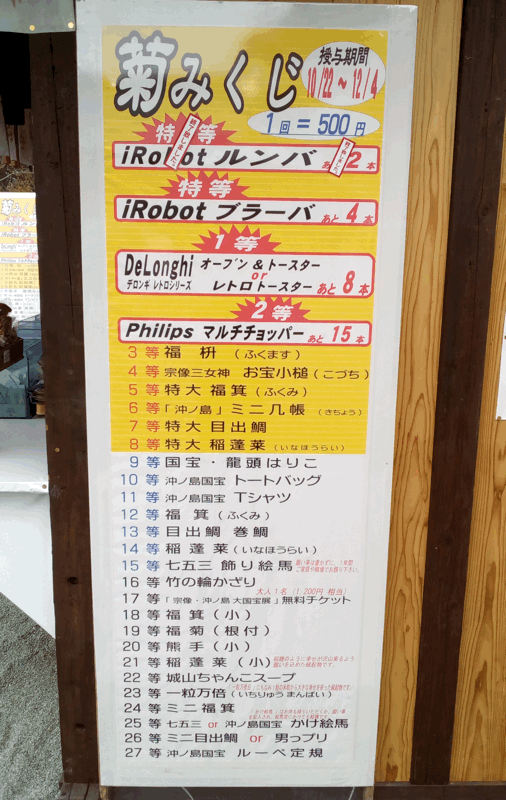 菊みくじ
授与期間
10/22~12/4
1回=500円
特等
終了致しました。
iRobot ルンバ あと2本
終了致しました。
特等
iRobot ブラーバ あと4本
1等
DeLonghi オーブン&トースター
デロンギ レトロシリーズ or レトロトースター あと8本
2等
Philips マルチチョッパー あと15本
3等 福枡 (ふくます)
4等 宗像三女神 お宝小槌(こづち)
5等 特大福箕(ふくみ)
6等 「沖ノ島」ミニ几帳 (きちょう)
7等 特大目出鯛
8等 特大稲蓬莱(いなほうらい)
9等 国宝・龍頭はりこ
10等 沖ノ島国宝 トートバッグ
11等 沖ノ島国宝 Tシャツ
12等 福箕(ふくみ)
13等 目出鯛 巻鯛
14等 稲蓬莱(いなほうらい)
15等 七五三 飾り絵馬
16等 竹の輪かざり
大人1名(1,200円 相当)
17等 「宗像・沖ノ島 大国宝展」無料チケット
18等 福箕(小)
19等 福菊(根付)
20等 熊手(小)
21等 稲蓬莱(小)
22等 城山ちゃんこスープ
23等 一粒万倍(いちりゅうまんばい)
24等 ミニ福箕
25等 七五三 or 沖ノ島国宝 かけ絵馬
26等 ミニ目出鯛 or 男っブリ
27等 沖ノ島国宝 ルーペ定規